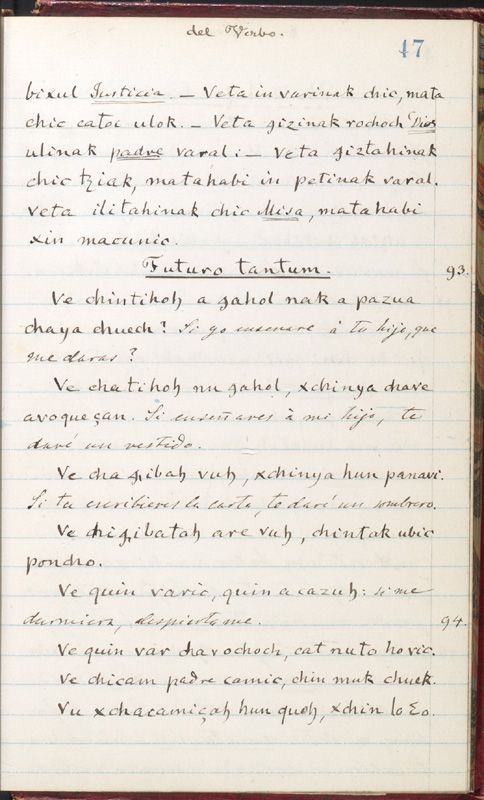 del Verbo.
47
bixul Justicia. — Veta in varinak chic, mata
chic catoc ulok. — Veta gizinak rochoch Dios
ulinak padre varal: — Veta giztahinak
chic tziak, matahabi in petinak varal.
veta ilitahinak chic Misa, matahabi
xin macunic.
Futuro tantum. 93.
Ve chintihoh a gahol nak a pazua
chaya chuech? Si yo enseñare à tu hijo, que
me daras?
Ve chatihoh nu gahol, xchinya chave
avoqueçan. Si enseñares à mi hijo, te
daré un vestido.
Ve cha gibah vuh, xchinya hun panavi.
Si tu escribieres la carta, te daré un sombrero.
Ve chi gibatah are vuh, chintak ubic
poncho.
Ve quin varic, quin a cazuh: si me
durmiera, despiertame. 94.
Ve quin var chavochoch, cat nuto hovic.
Ve chicam padre camic, chin muk chuek.
Vu xchacamiçah hun queh, xchin lo Ɛo.